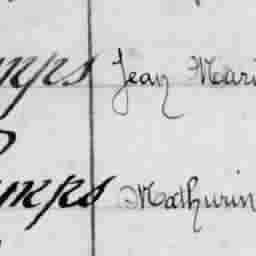 mps Jean Mari
mps Mathurin